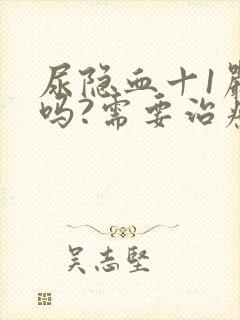 尿隐血十1
吗?需要治
吴志坚